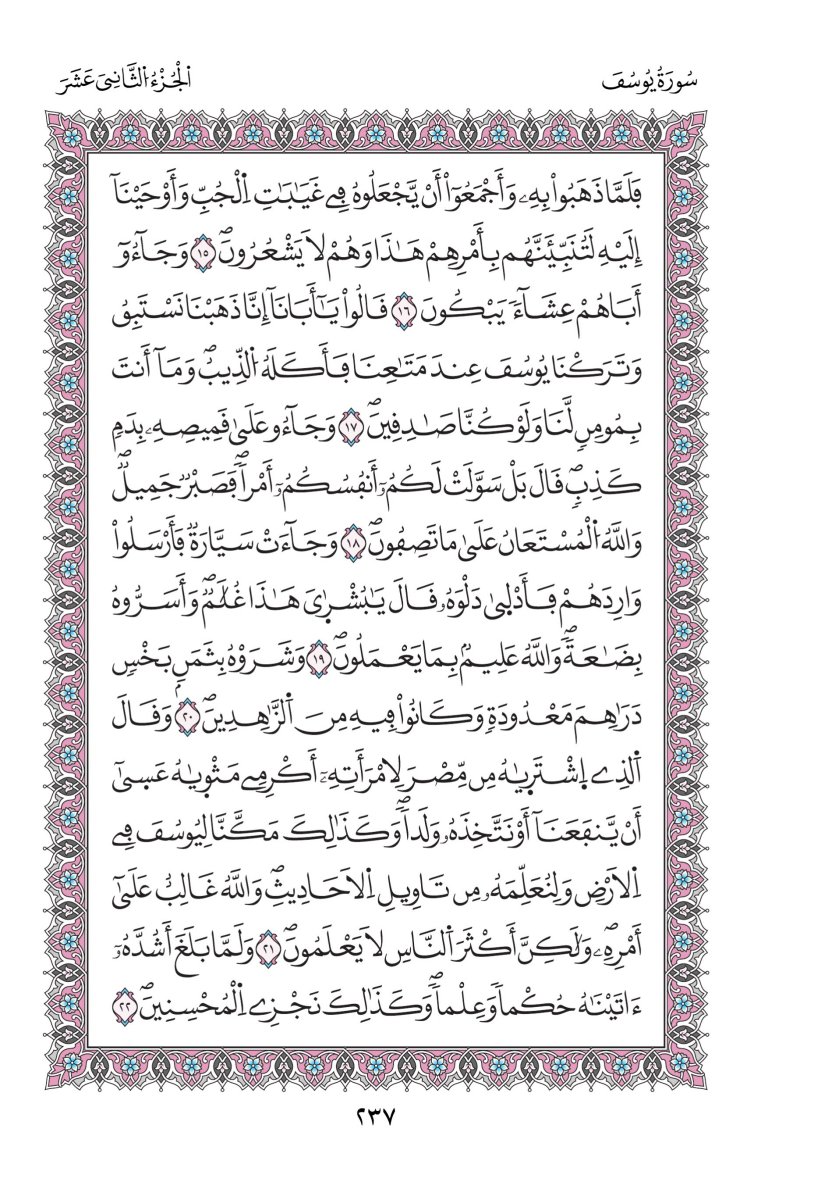 سُورَةُ يُوسُفَ
اَلْجُزْءُ اُلثَّانِيَ عَشَرَ
فَلَمَّا ذَهَبُواْ بِهِۦ وَأَجْمَعُوٓاْ أَنْ يَّجْعَلُوهُ فِے غَيَٰبَٰتِ اِلْجُبِّ وَأَوْحَيْنَآ
إِلَيْهِ لَتُنَبِّئَنَّهُم بِأَمْرِهِمْ هَٰذَا وَهُمْ لَا يَشْعُرُونَۖ ١٥ وَجَآءُوٓ
أَبَاهُمْ عِشَآءٗ يَبْكُونَ ١٦ قَالُواْ يَٰٓأَبَانَآ إِنَّا ذَهَبْنَا نَسْتَبِقُ
وَتَرَكْنَا يُوسُفَ عِندَ مَتَٰعِنَا فَأَكَلَهُ اُلذِّيبُۖ وَمَآ أَنتَ
بِمُومِنٖ لَّنَا وَلَوْ كُنَّا صَٰدِقِينَۖ ١٧ وَجَآءُو عَلَىٰ قَمِيصِهِۦ بِدَمٖ
كَذِبٖۖ قَالَ بَلْ سَوَّلَتْ لَكُمُۥٓ أَنفُسُكُمُۥٓ أَمْراٗۖ فَصَبْرٞ جَمِيلٞۖ
وَاللَّهُ اُلْمُسْتَعَانُ عَلَىٰ مَا تَصِفُونَۖ ١٨ وَجَآءَتْ سَيَّارَةٞ فَأَرْسَلُواْ
وَارِدَهُمْ فَأَدْلَىٰ دَلْوَهُۥ قَالَ يَٰبُشْرَٜىٰ هَٰذَا غُلَٰمٞۖ وَأَسَرُّوهُ
بِضَٰعَةٗۖ وَاللَّهُ عَلِيمُۢ بِمَا يَعْمَلُونَۖ ١٩ وَشَرَوْهُ بِثَمَنِۢ بَخْسٖ
دَرَٰهِمَ مَعْدُودَةٖ وَكَانُواْ فِيهِ مِنَ اَلزَّٰهِدِينَۖ ٢٠ وَقَالَ
اَلذِے اِشْتَر۪ىٰهُ مِن مِّصْرَ لِامْرَأَتِهِۦٓ أَكْرِمِے مَثْو۪ىٰهُ عَس۪ىٰٓ
أَنْ يَّنفَعَنَآ أَوْ نَتَّخِذَهُۥ وَلَداٗۖ وَكَذَٰلِكَ مَكَّنَّا لِيُوسُفَ فِے
اِلَارْضِ وَلِنُعَلِّمَهُۥ مِن تَاوِيلِ اِلَاحَادِيثِۖ وَاللَّهُ غَالِبٌ عَلَىٰٓ
أَمْرِهِۦۖ وَلَٰكِنَّ أَكْثَرَ اَلنَّاسِ لَا يَعْلَمُونَۖ ٢١ وَلَمَّا بَلَغَ أَشُدَّهُۥٓ
ءَاتَيْنَٰهُ حُكْماٗ وَعِلْماٗۖ وَكَذَٰلِكَ نَجْزِے اِلْمُحْسِنِينَۖ ٢٢
٢٣٧